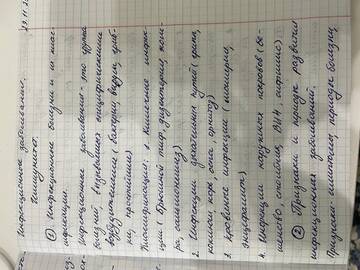 29.11.2
Инфекционные заболевания.
Иммунитет.
① Инфекционные болезни и их клас-
сификация.
Инфекционные заболевания - это группа
болезней, вызванных специфическими
возбудителями (бактерии, вирусы, гриб-
ки, простейшие)
Классификация: 1. Кишечные инфек-
ции (брюшной тиф, дизентерия, холе-
ра, сальмонеллез)
2. Инфекции дыхательных путей (грипп,
коклюш, корь, оспа, орнитоз)
3. Кровяные инфекции (малярия,
энцефалит)
4. Инфекции наружных покровов (бе-
шенство, столбняк, ВИЧ, сифилис)
② Признаки и периоды развития
инфекционных заболеваний.
Признаки - симптомы, периоды болезни,